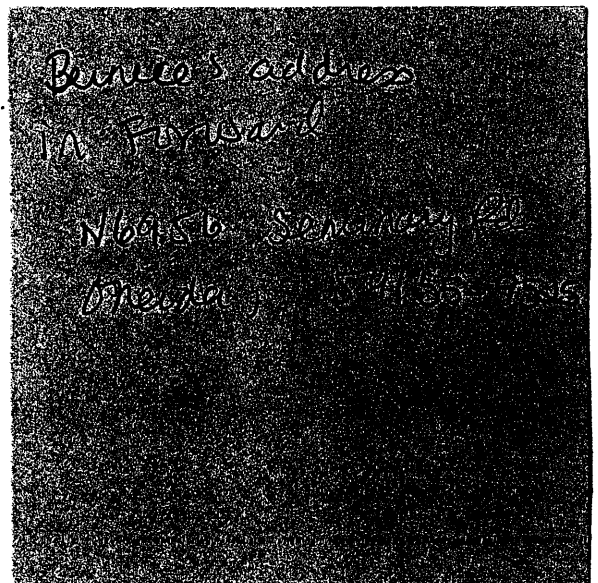 Bernice's address
in Forward
N6956 Seminary Rd
Oneida,